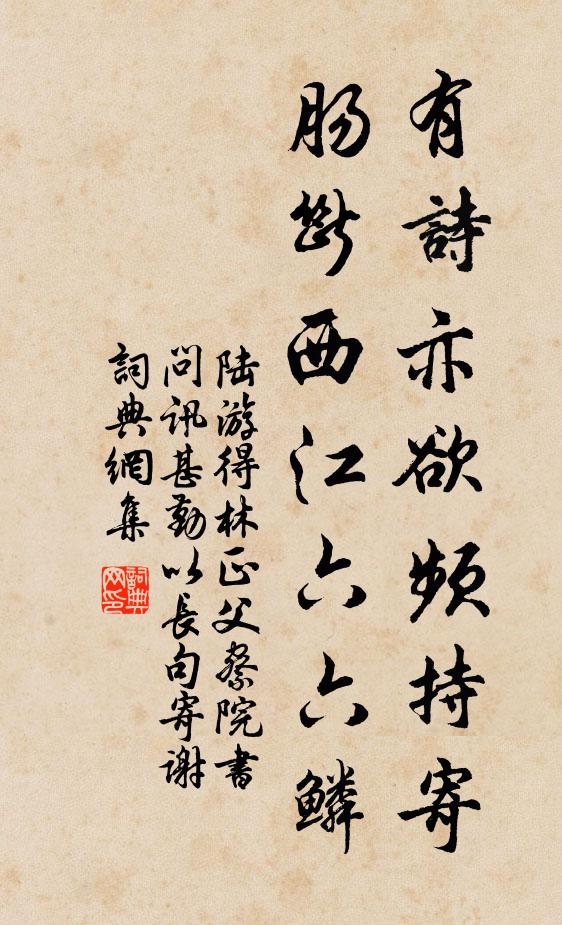 有詩亦欲頻持寄
腸斷西江六六鱗
陸游得林正父察院書
問訊甚勤以長句寄謝
詞典網集
詞典
网印